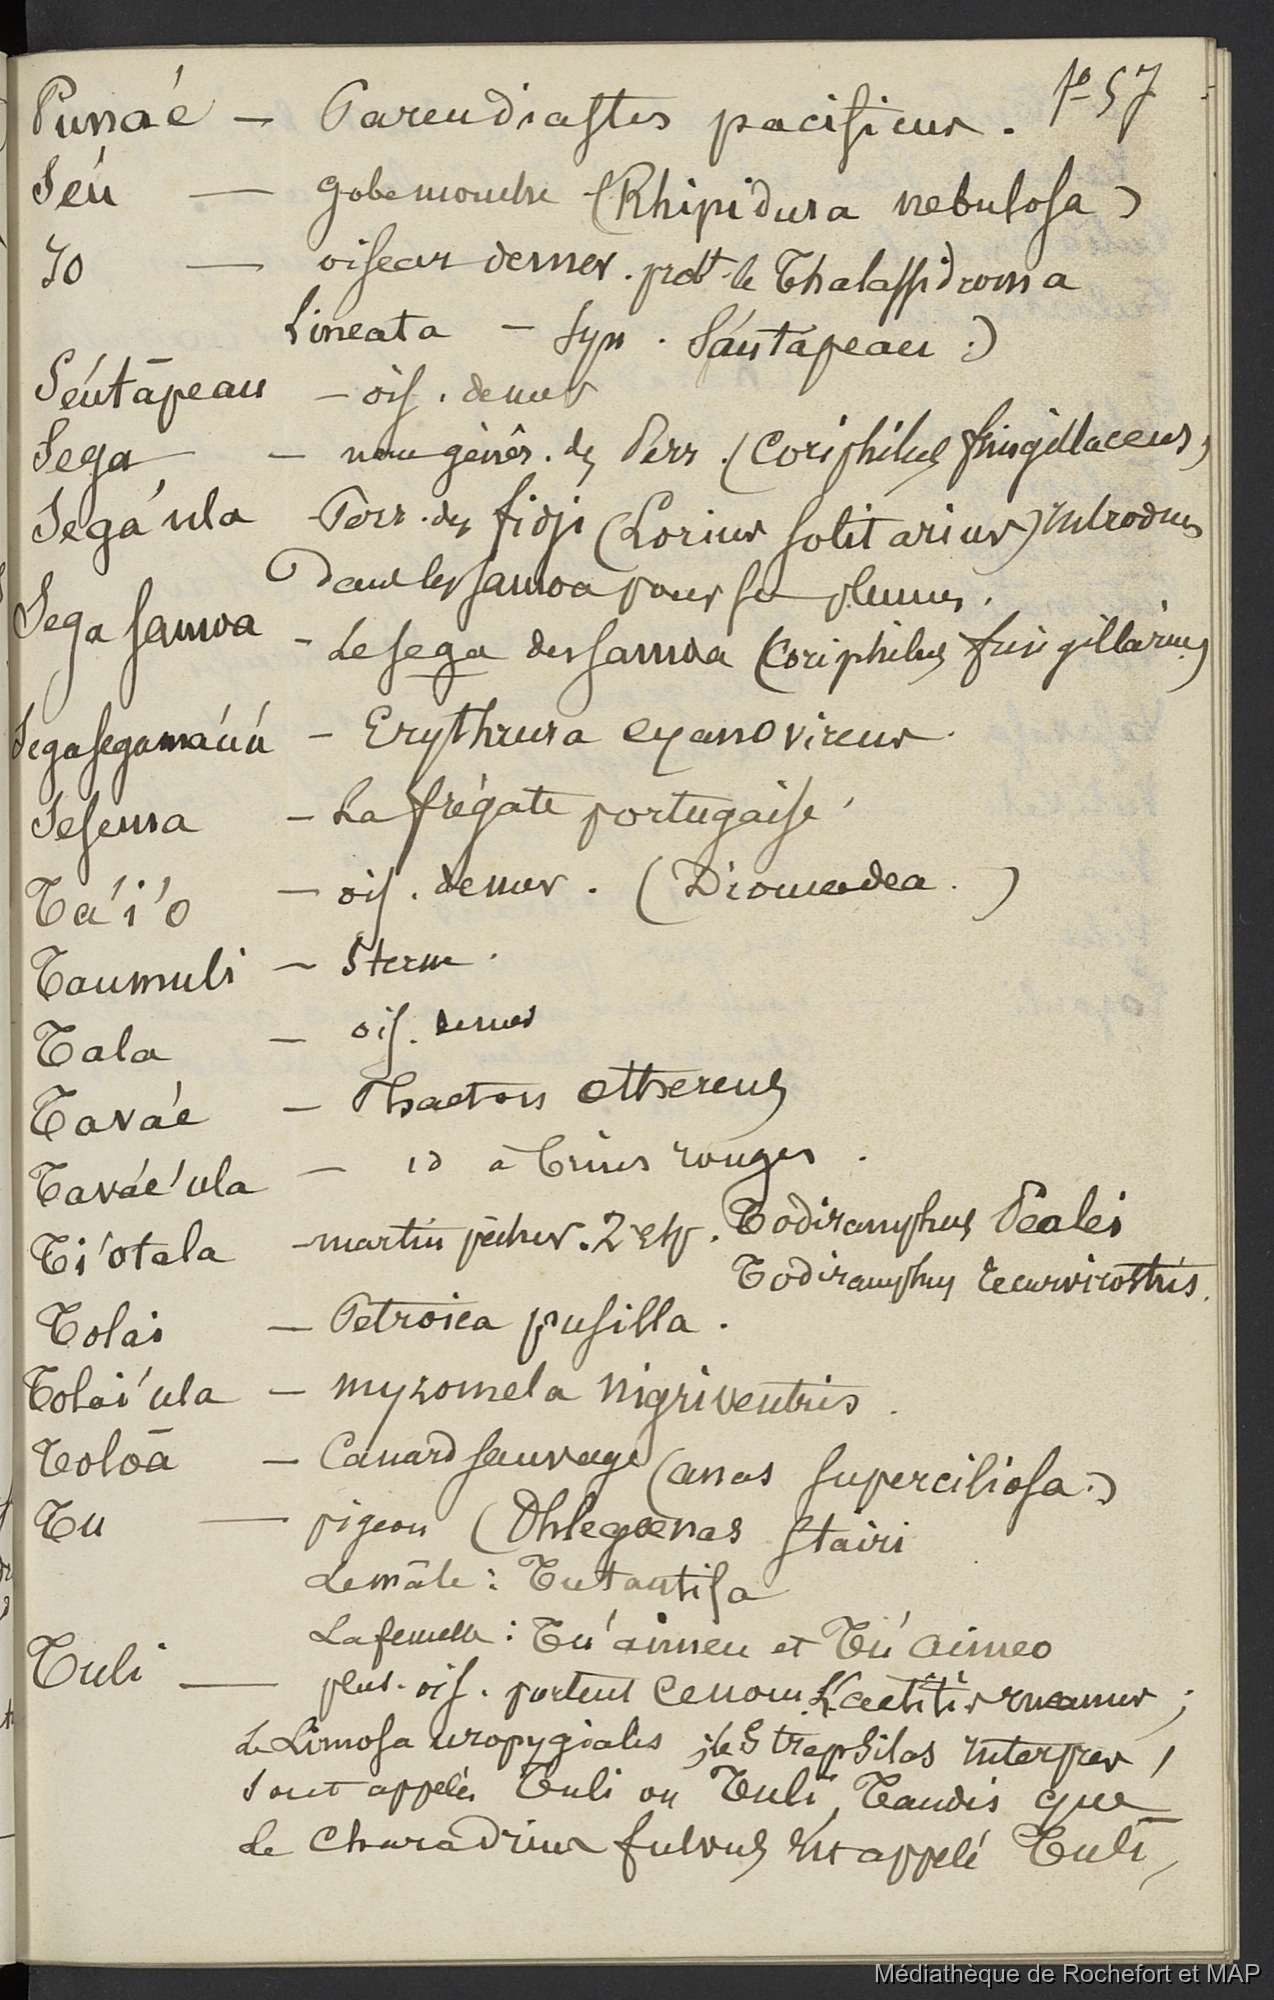 pe 57
Punaé — Pareudiastes pacificus.
Séu — gobemouche (Rhipidura nebulosa)
Io — oiseau de mer. prob.t le Thalassidroma
Lineata — Syn. Sáutapeau.)
Séutāpeau — ois. de mer
Sega — nom génér. des Perr. (Coriphilus fringillaceus)
Sega'ula Perr. des fidji (Lorius solitarius) introdues
dans les Samoa pour ses plumes.
Sega samoa — Le sega des Samoa (Coriphilus fringillarius)
Segasegamáúú — Erythrura cyanovirens.
Sesema — La frégate portugaise
Ta'i'o — ois. de mer. (Diomedea.)
Taumuli — Sterne.
Tala — ois. de mer
Taváe — Phaeton ethereus
Taváe'ula — id à brins rouges.
Ti'otala — martin pêcheur. 2 esp. Todiramphus Pealei
Todiramphus recurvirostris.
Tolai — Petroica pusilla.
Tolai'ula — myzomela nigriventris.
Toloā — Canard sauvage (anas superciliosa.)
Tu — pigeon (Phlegoenas Stairi
Le mâle : Tutautifa
La femelle : Tu'aimeu et Tu'aimeo
Tuli — plus. ois. portent ce nom. L'actitis incanus ;
Le Limosa uropygialis ; le Strepsilas interpres,
sont appelés Tuli ou Tuli, Tandis que
Le Charadrius fulvus est appelé Tuli,
Médiathèque de Rochefort et MAP